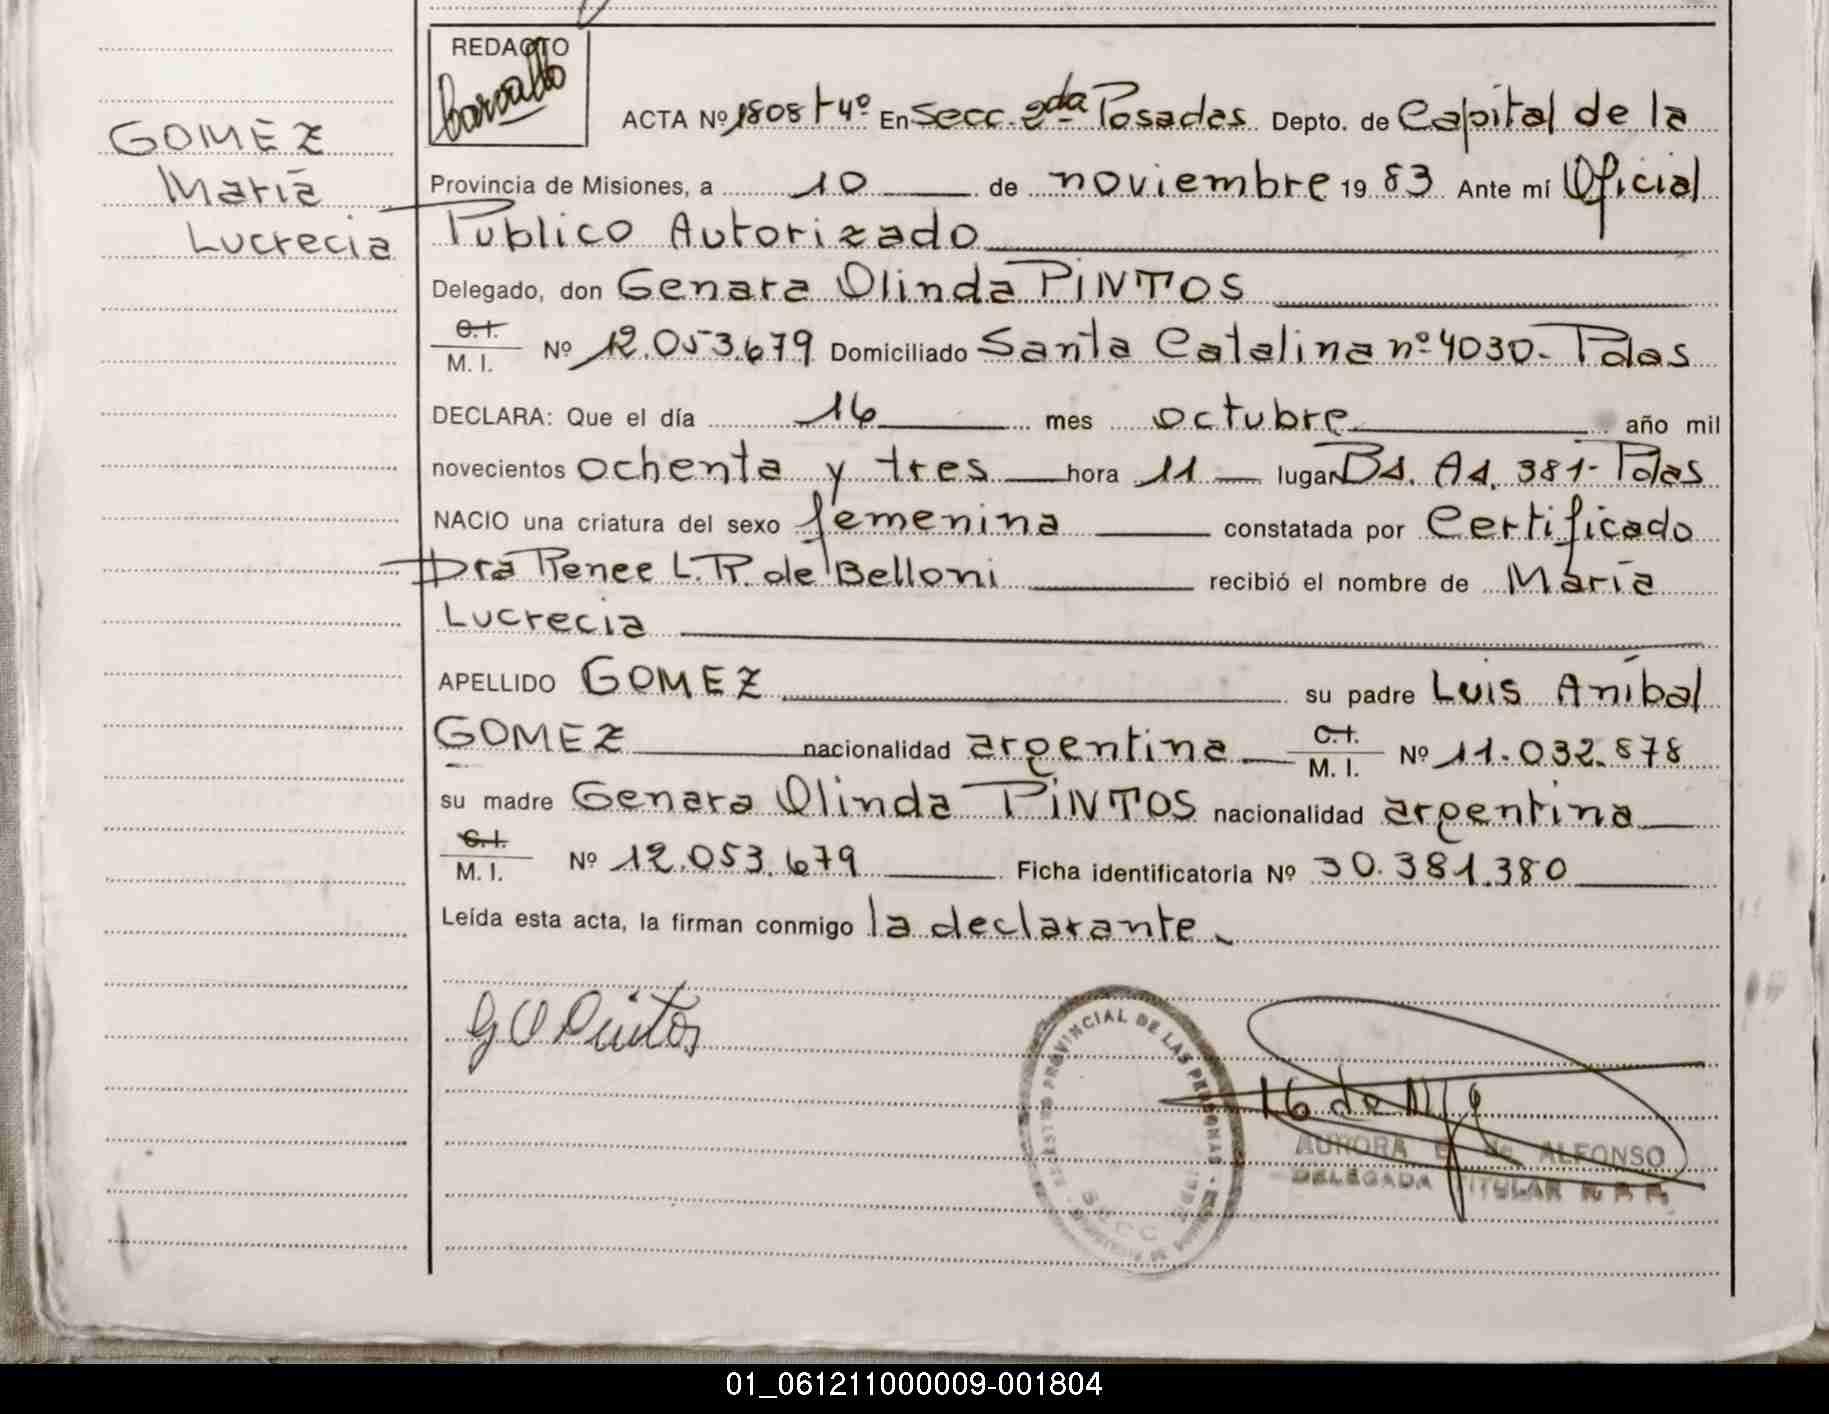 REDACTO
ACTA Nº 1808 t-4º En Secc. 2da Posadas Depto. de Capital de la
GOMEZ
María
Lucrecia
Provincia de Misiones, a 10 de noviembre 19 83 Ante mí Oficial
Publico Autorizado
Delegado, don Genara Olinda PiNTOS
C.I.
M. I. Nº 12.053.679 Domiciliado Santa Catalina nº 4030- Pdas
DECLARA: Que el día 16 mes octubre año mil
novecientos ochenta y tres hora 11 lugar Bs. As. 381- Pdas
NACIO una criatura del sexo femenina constatada por Certificado
Dra Renee L. R. de Belloni recibió el nombre de María
Lucrecia
APELLIDO GOMEZ su padre Luis Aníbal
GOMEZ nacionalidad argentina C.I. M. I. Nº 11.032.878
su madre Genara Olinda PiNTOS nacionalidad argentina
C.I.
M. I. Nº 12.053.679 Ficha identificatoria Nº 30.381.380
Leída esta acta, la firman conmigo la declarante.
G O Pintos
PROVINCIAL DE LAS PERSONAS
SECC
AURORA de ALFONSO
DELEGADA TITULAR R. P. P.
01_061211000009-001804